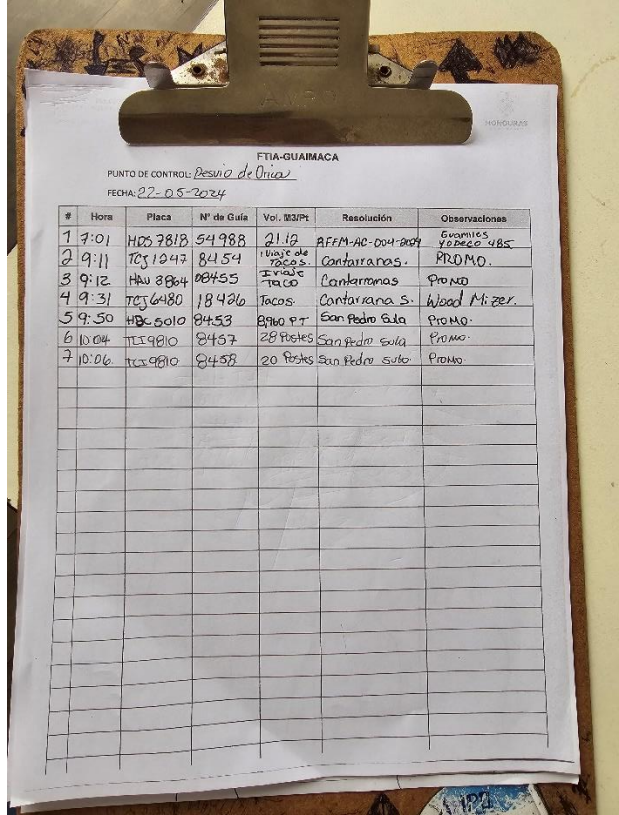 AMPO
HONDURAS
FTIA-GUAIMACA
PUNTO DE CONTROL: Desvio de Orica
FECHA: 22-05-2024
# Hora Placa N° de Guía Vol. M3/Pt Resolución Observaciones
1 7:01 HDS 7818 54988 21.12 AFFM-AC-004-2009 Guamiles YODECO 485
2 9:11 TCJ 1247 8454 1 Viaje de Tacos. Cantarranas. PROMO.
3 9:12 HAU 3864 08455 1 viaje Taco Cantarranas Promo
4 9:31 TCJ6480 18426 Tacos. Cantarrana s. Wood Mizer.
5 9:50 HBC 5010 8453 8,960 PT San Pedro Sula Promo.
6 10:04 TCI9810 8457 28 Postes San Pedro Sula Promo.
7 10:06 TCI9810 8458 20 Postes San Pedro Sula Promo.